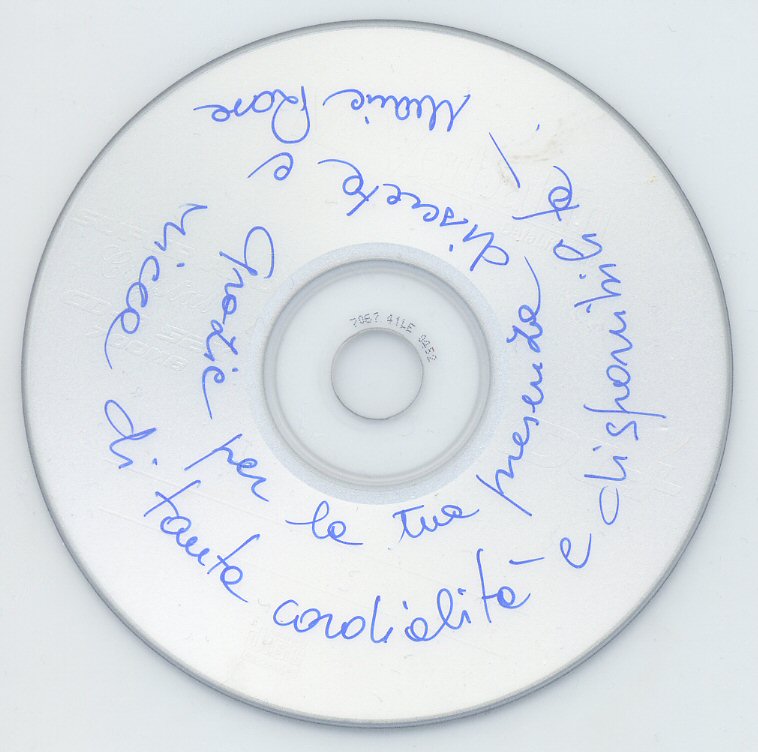 Grazie per la tua presenza discreta e
ricca di tanta cordialità e disponibilità!
Marie Rose
41LE